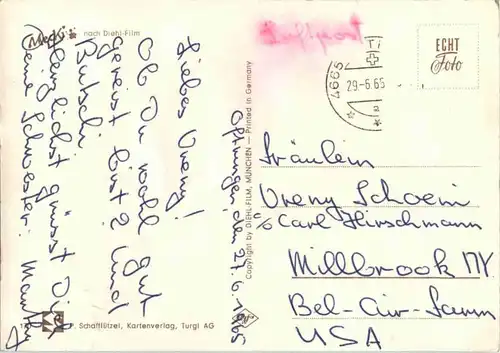 Mecki
nach Diehl-Film
Oftringen den 27.6.1965
Liebes Vreny!
Ob Du wohl gut
gereist bist? Und
Butschi
Herzlichst grüsst Dich
Deine Schwester:
Luftpost
4665
29.-6.65
ECHT
Foto
Fräulein
Vreny Schoeni
c/o Carl Hirschmann
Millbrook NY.
Bel-Air-Farm
USA
Copyright by DIEHL-FILM, MÜNCHEN — Printed in Germany
P. Schafflützel, Kartenverlag, Turgi AG